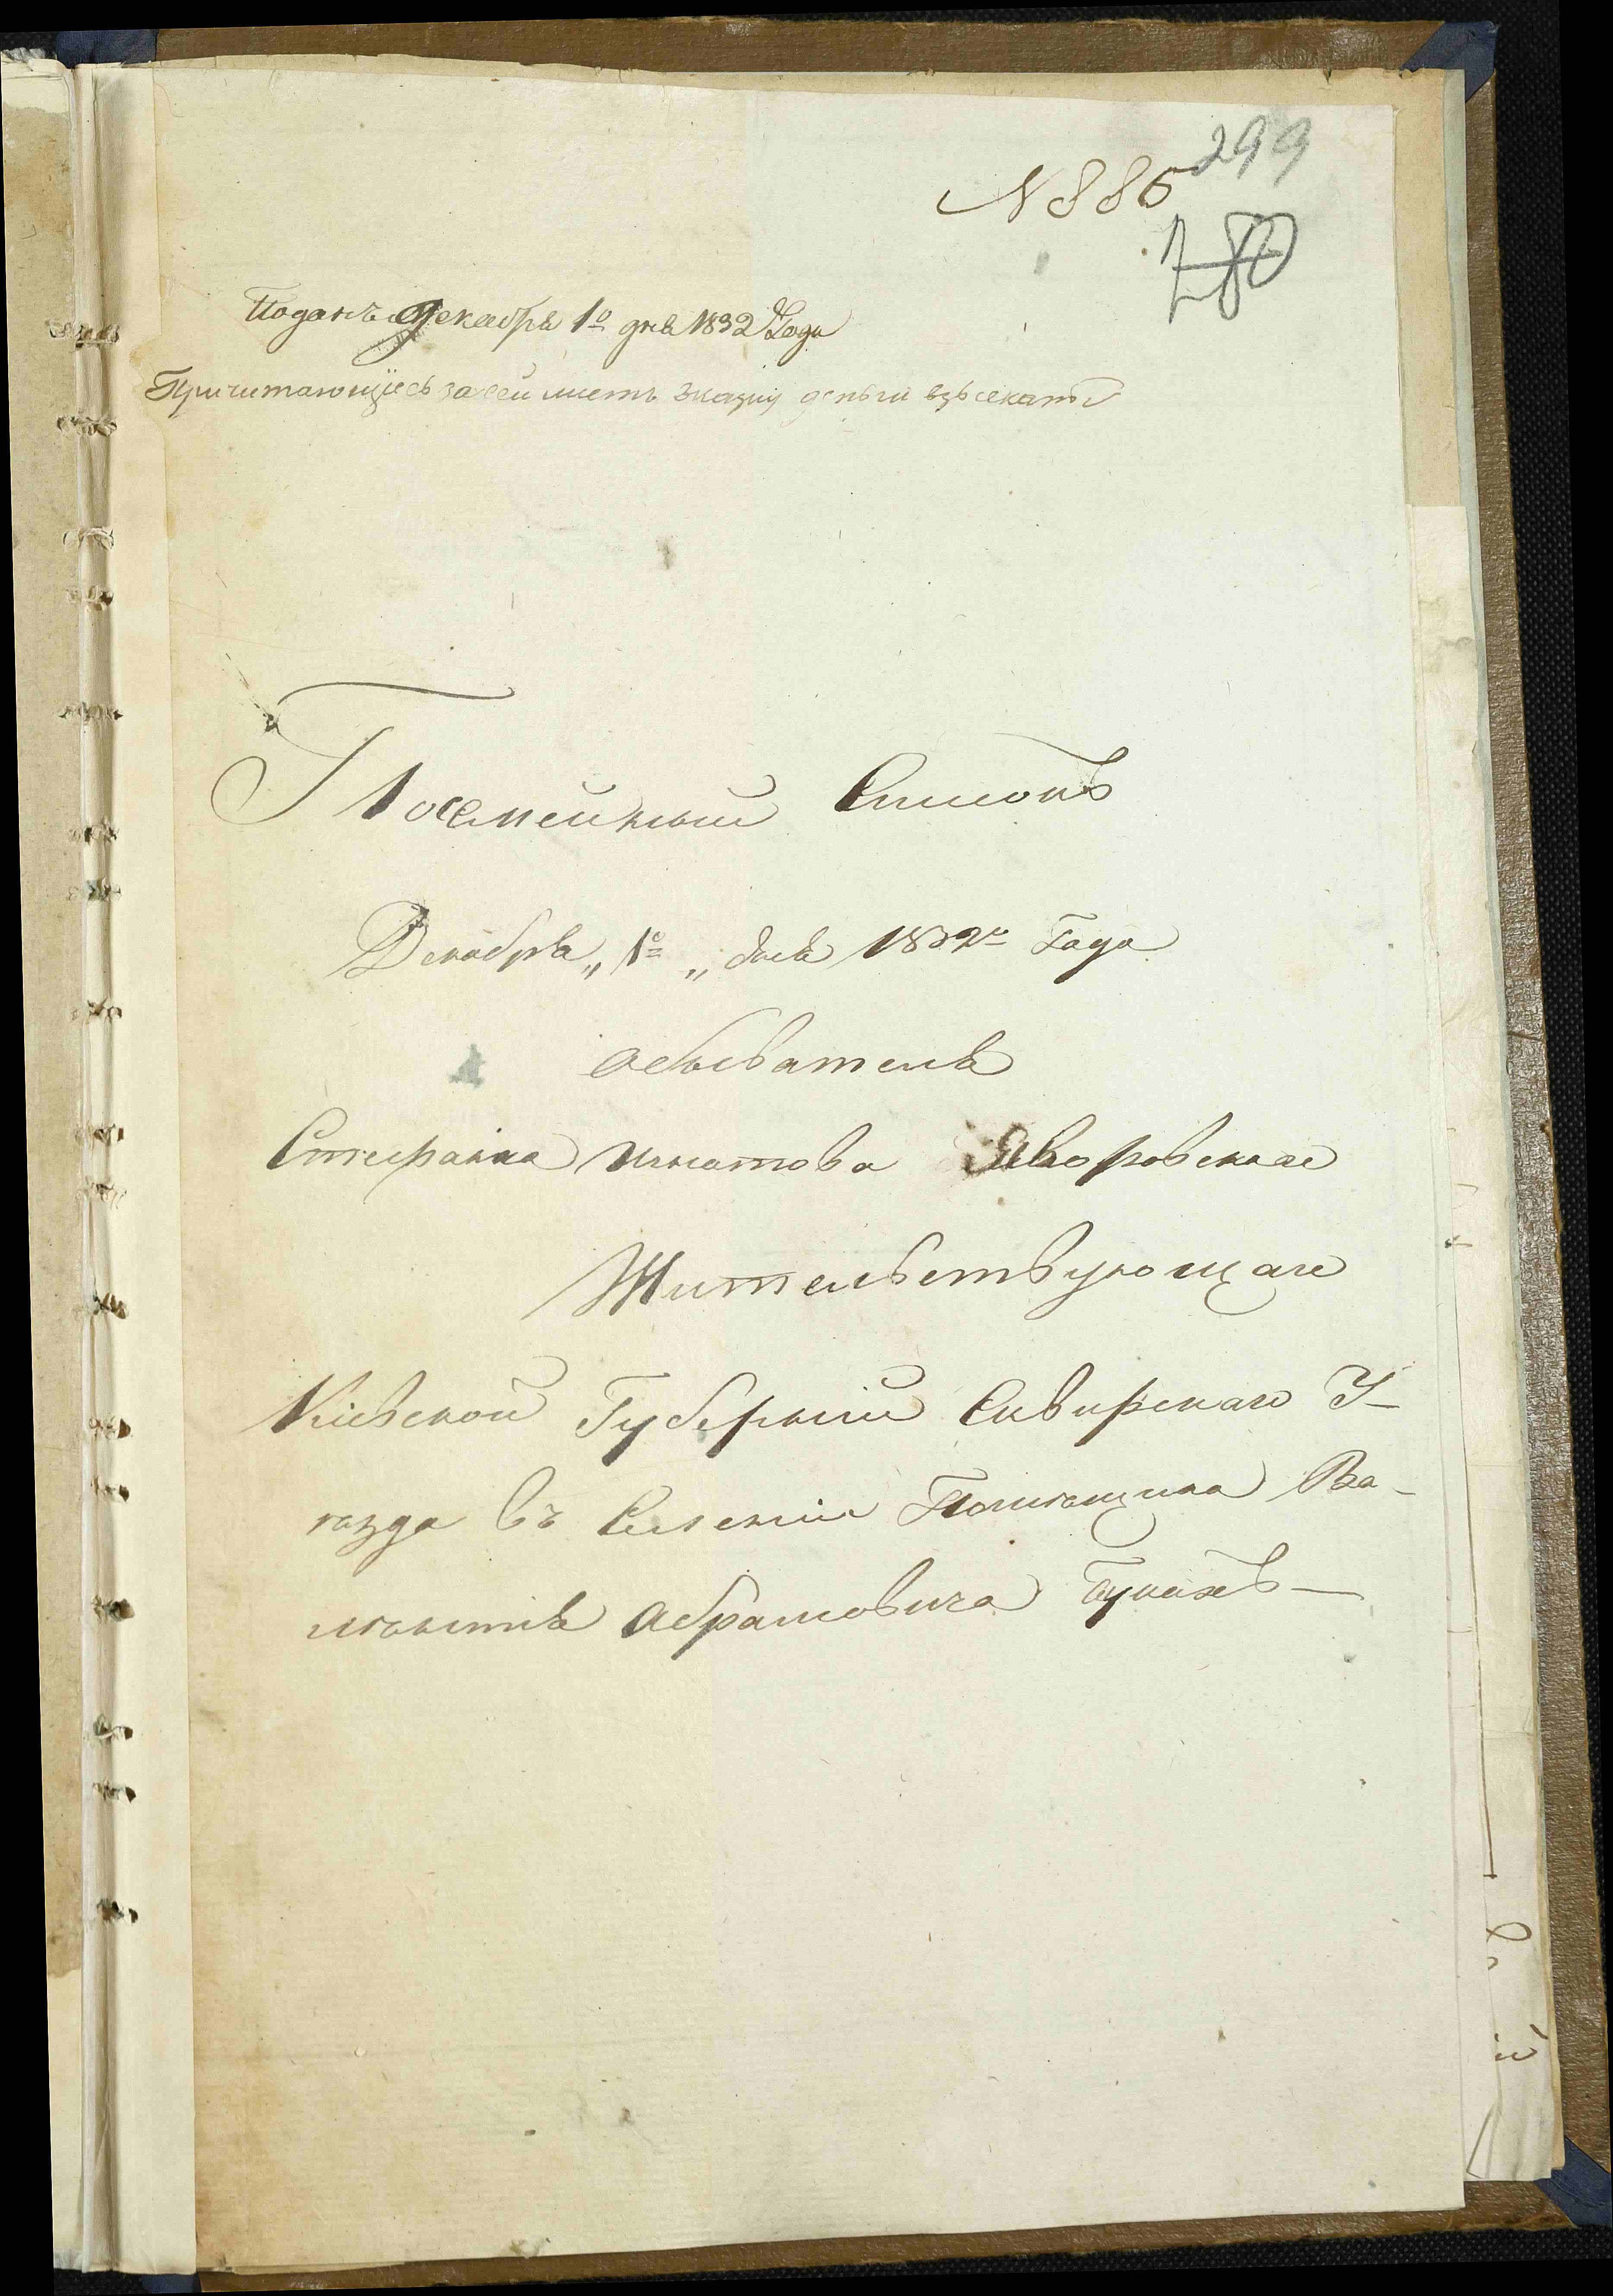 299
N 886
780
Поданъ Декабря 1º дня 1832 Года
Причитающіесь за сей листъ вказну деньги взъискать
Посемейный Списокъ
Декабря „1º„ дня 1832го Года
Обывателя
Стефана Игнатова Яворовскаго
Жительствующаго
Кіевской Губерніи Сквирскаго У-
езда въ Селеніи Помѣщика Ва-
Абрамовича